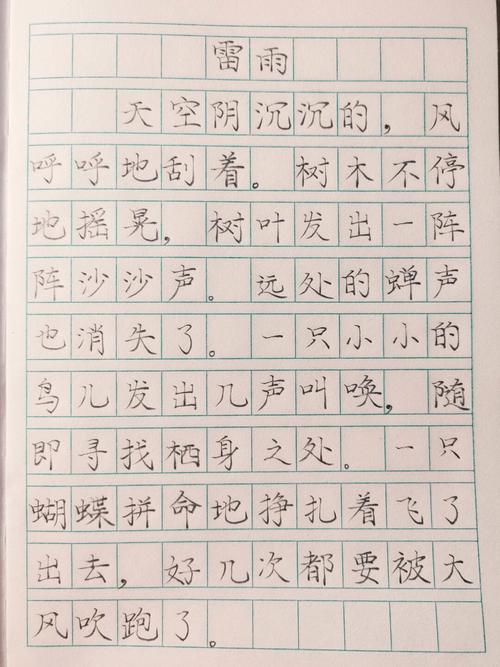 雷雨
天空阴沉沉的，风
呼呼地刮着。树木不停
地摇晃，树叶发出一阵
阵沙沙声。远处的蝉声
也消失了。一只小小的
鸟儿发出几声叫唤，随
即寻找栖身之处。一只
蝴蝶拼命地挣扎着飞了
出去，好几次都要被大
风吹跑了。